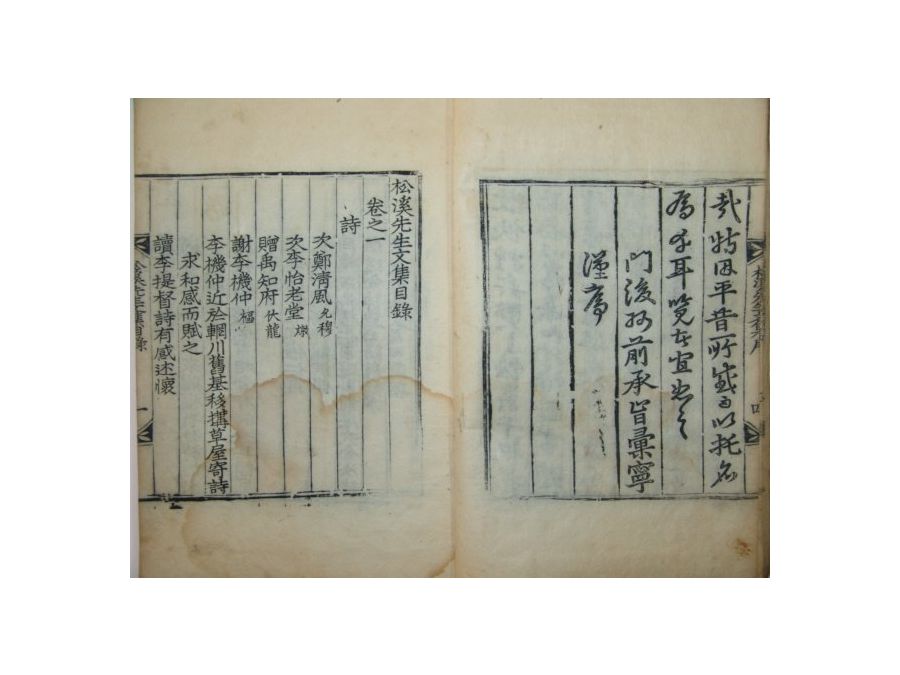 哉特因平昔所感而以托名
為幸耳覽者宜恕之
門後孫前承旨彙寧
謹序
松溪先生文集序
松溪先生文集目錄
卷之一
詩
次鄭淸風 允穆
次李怡老堂
贈禹知府 伏龍
謝李機仲
李機仲近於輞川舊基移搆草屋寄詩
求和感而賦之
讀李提督詩有感述懷
松溪先生文集目錄 一